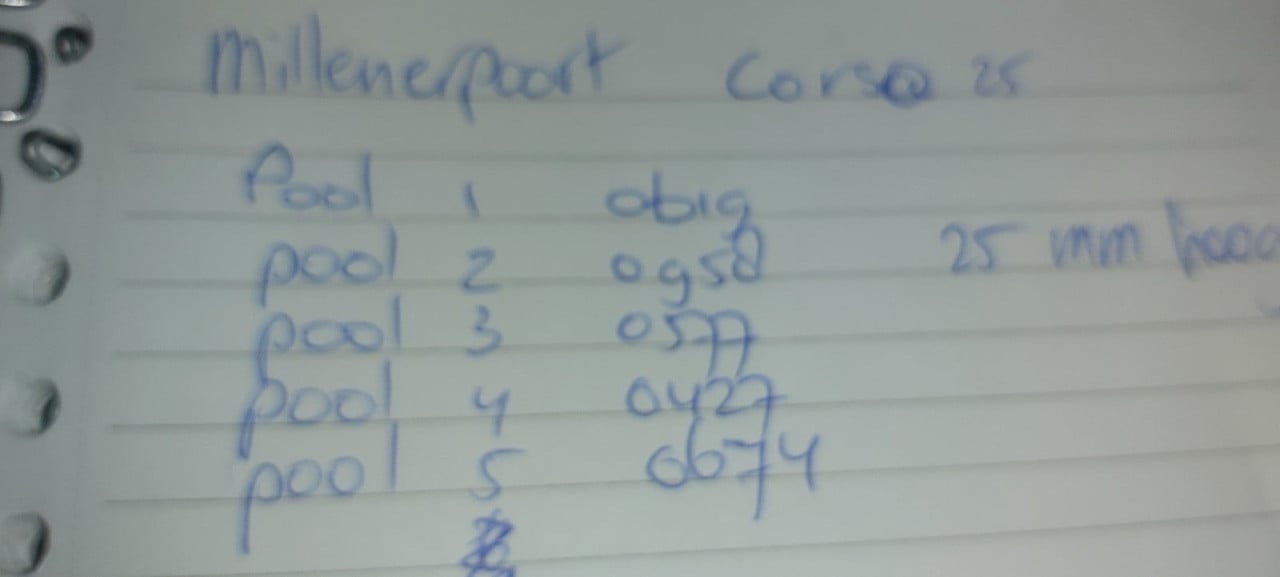 Millenerpoort Corso 25
Pool 1 0619
pool 2 0958
25 mm hoog
pool 3 0577
pool 4 0427
pool 5 0674